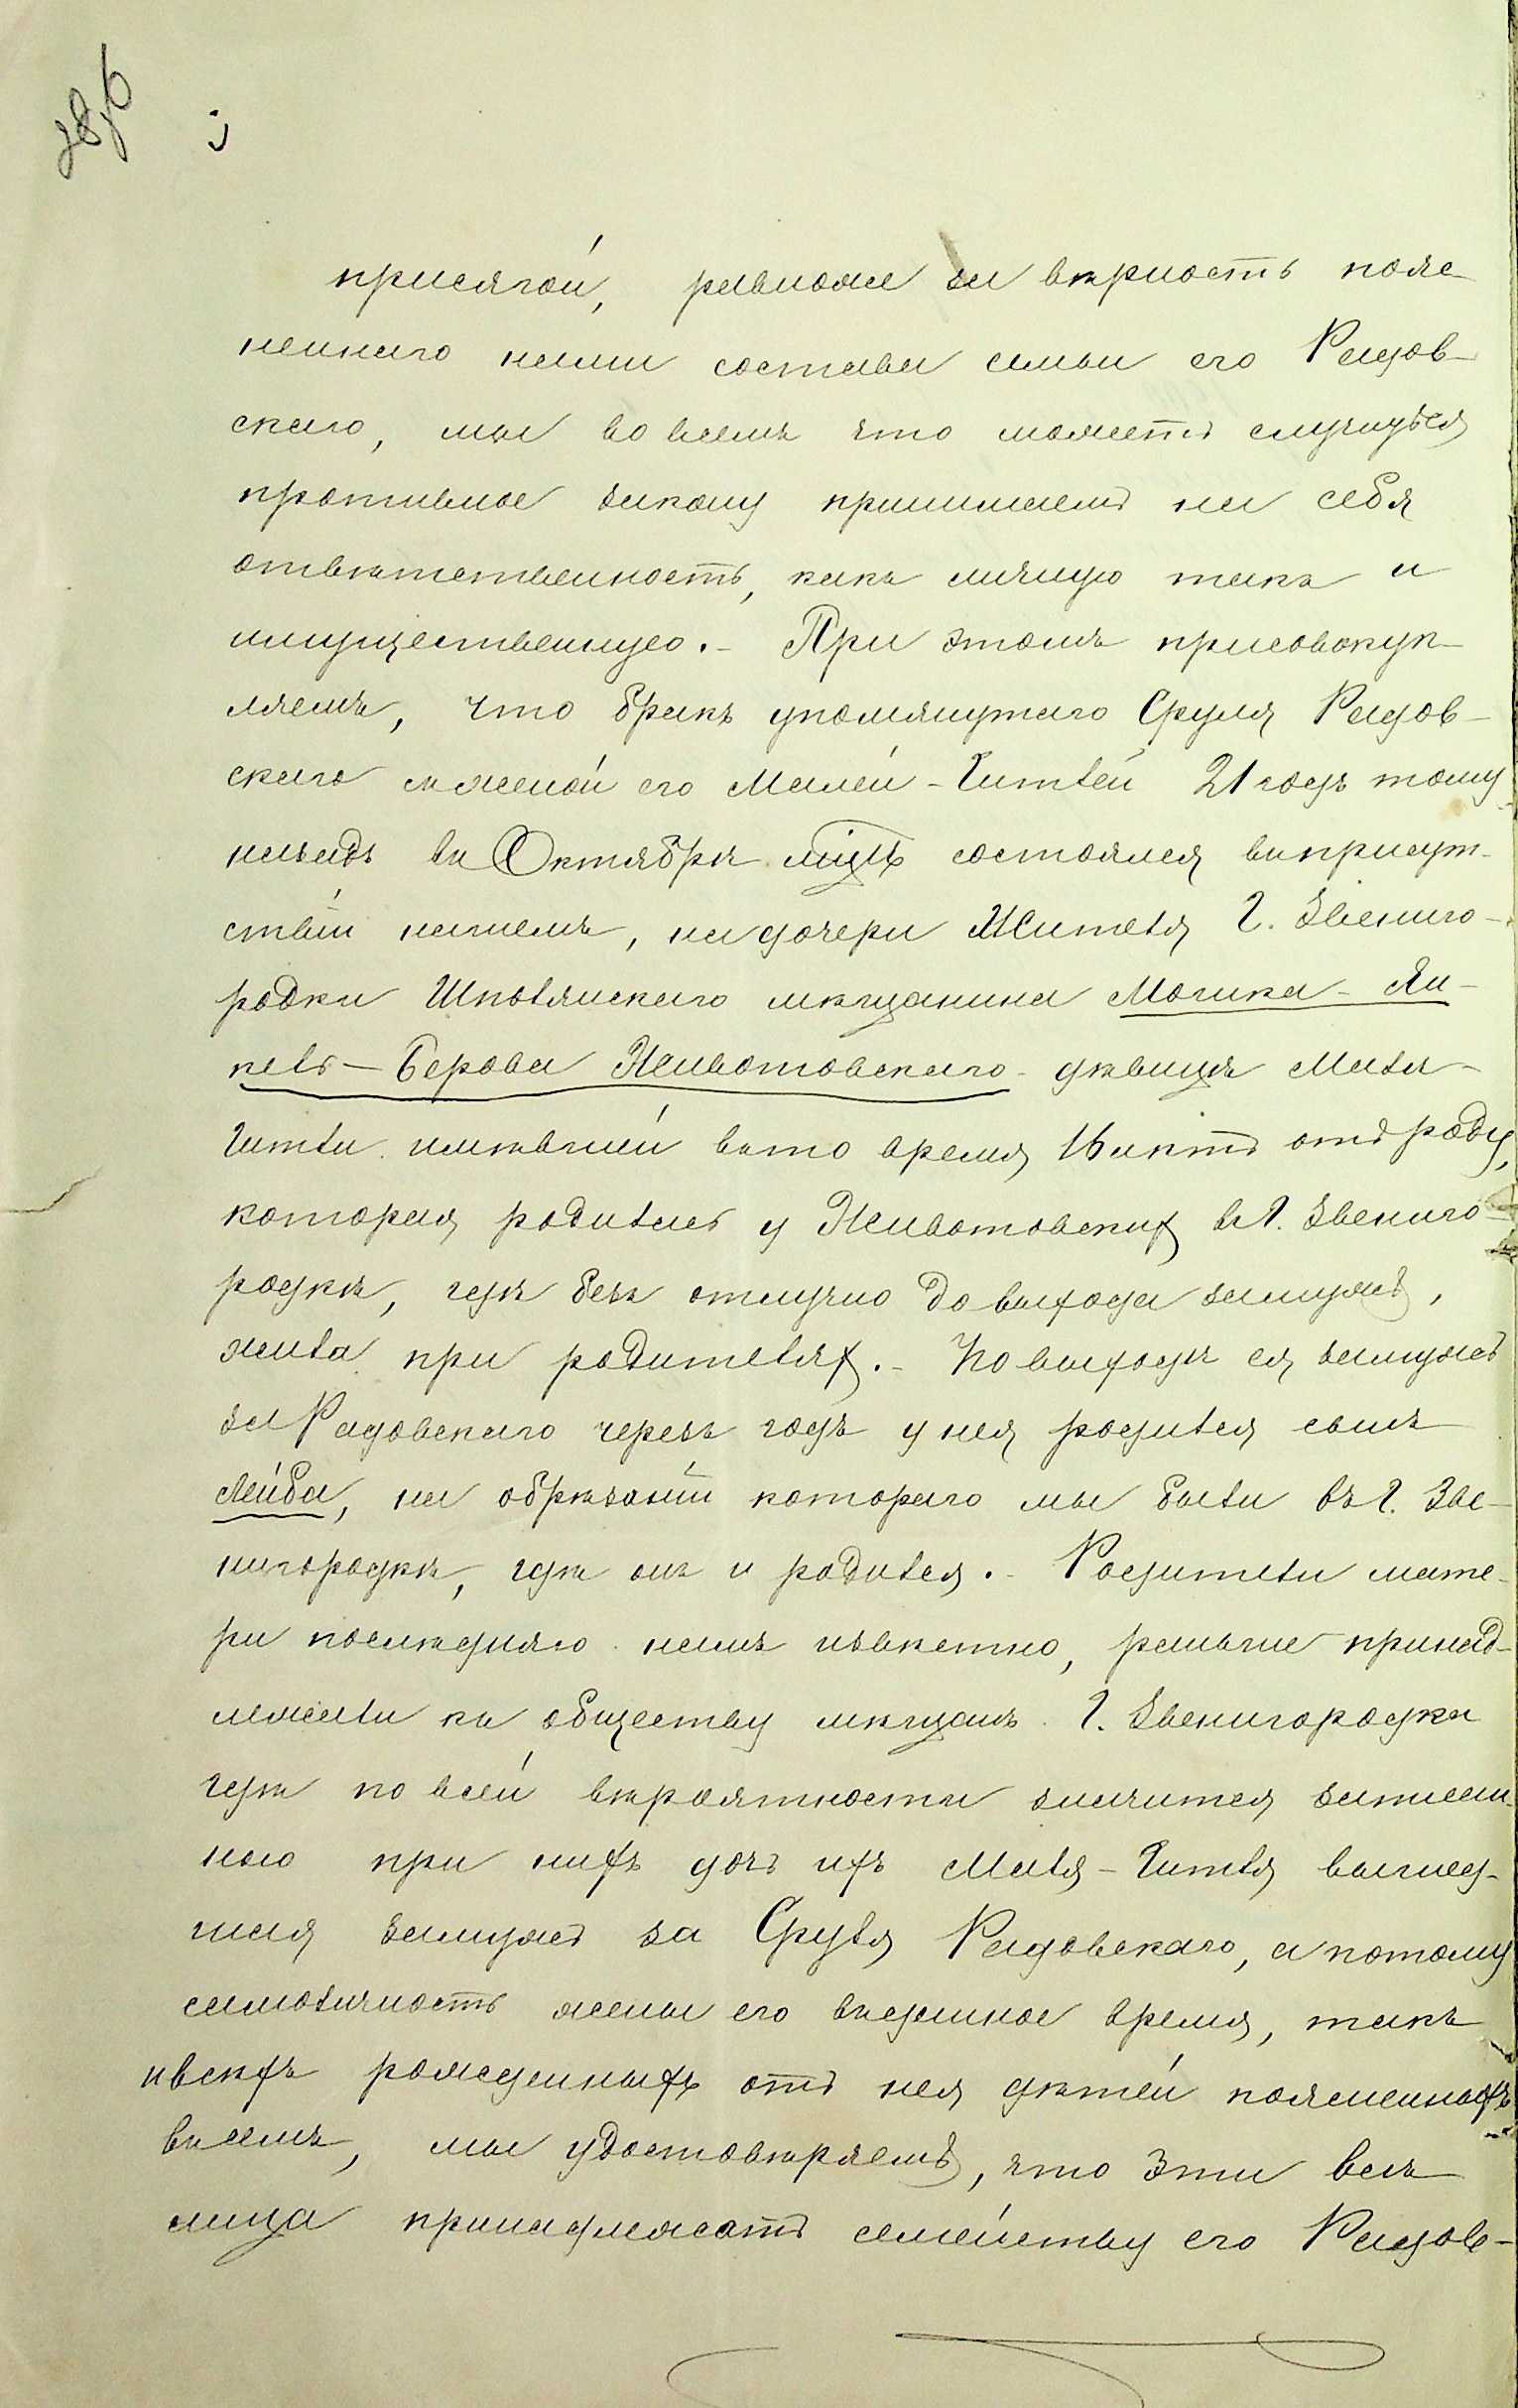 присягой, равноже за вѣрность пояс
неннаго нами состава семьи его Радов-
скаго, мы во всемъ что можетъ случиться
противное закону принимаемъ на себя
отвѣтственность, какъ личную такъ и
имущественную.- При этомъ присовокуп-
ляемъ, что бракъ упомянутаго Сруля Радов-
скаго съ женой его Малей-Гитлей 21 годъ тому
назадъ въ Октябрѣ мцѣ состоялся въ присут-
ствіи нашемъ, на дочери Жителя Г. Звениго-
родки Шполянскаго мѣщанина Мошка-Ян-
келя-Берова Животовскаго дѣвицѣ Малѣ-
Гитли имѣвшей въ то время 16 лѣтъ отъ роду,
которая родилась у Животовских въ Г. Звениго-
родкѣ, гдѣ безъ отлучно до выхода замужъ,
жила при родителях.- По выходѣ ея замужъ
за Радовскаго черезъ годъ у нея родился сынъ
Лейба, на обрѣзаніи котораго мы были въ Г. Зве-
нигородкѣ, гдѣ онъ и родился.- Родители мате-
ри послѣдняго намъ извѣстно, раньше принад-
лежали къ обществу мѣщанъ Г. Звенигородки
гдѣ по всей вѣроятности значится записан-
ною при нихъ дочь ихъ Маля-Гитля вышед-
шая замужъ за Сруля Радовскаго, а потому
самоличность жены его въ данное время, такъ
и всѣхъ рожденныхъ отъ нея дѣтей поясненныхъ
въ семъ, мы удостовѣряемъ, что эти всѣ
лица принадлежатъ семейству его Радов-